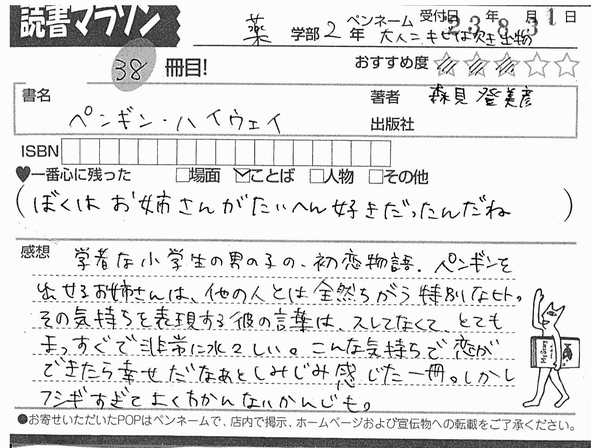 読書マラソン
薬 学部 2 年 ペンネーム 大人ニキせは欠き出物
受付日 23年 8月 31日
38 冊目!
おすすめ度 ★★★☆☆
書名 ペンギン・ハイウェイ
著者 森見登美彦
出版社
ISBN
♥一番心に残った □場面 ☑ことば □人物 □その他
(ぼくは お姉さんがたいへん好きだったんだね)
感想 学者な小学生の男の子の、初恋物語。ペンギンを
出せるお姉さんは、他の人とは全然ちがう特別なヒト。
その気持ちを表現する彼の言葉は、スレてなくて、とても
まっすぐで非常に水々しい。こんな気持ちで恋が
できたら幸せだなぁとしみじみ感じた一冊。しかし
フシギすぎてよくわかんないかんじも。
●お寄せいただいたPOPはペンネームで、店内で掲示、ホームページおよび宣伝物への転載をご了承ください。